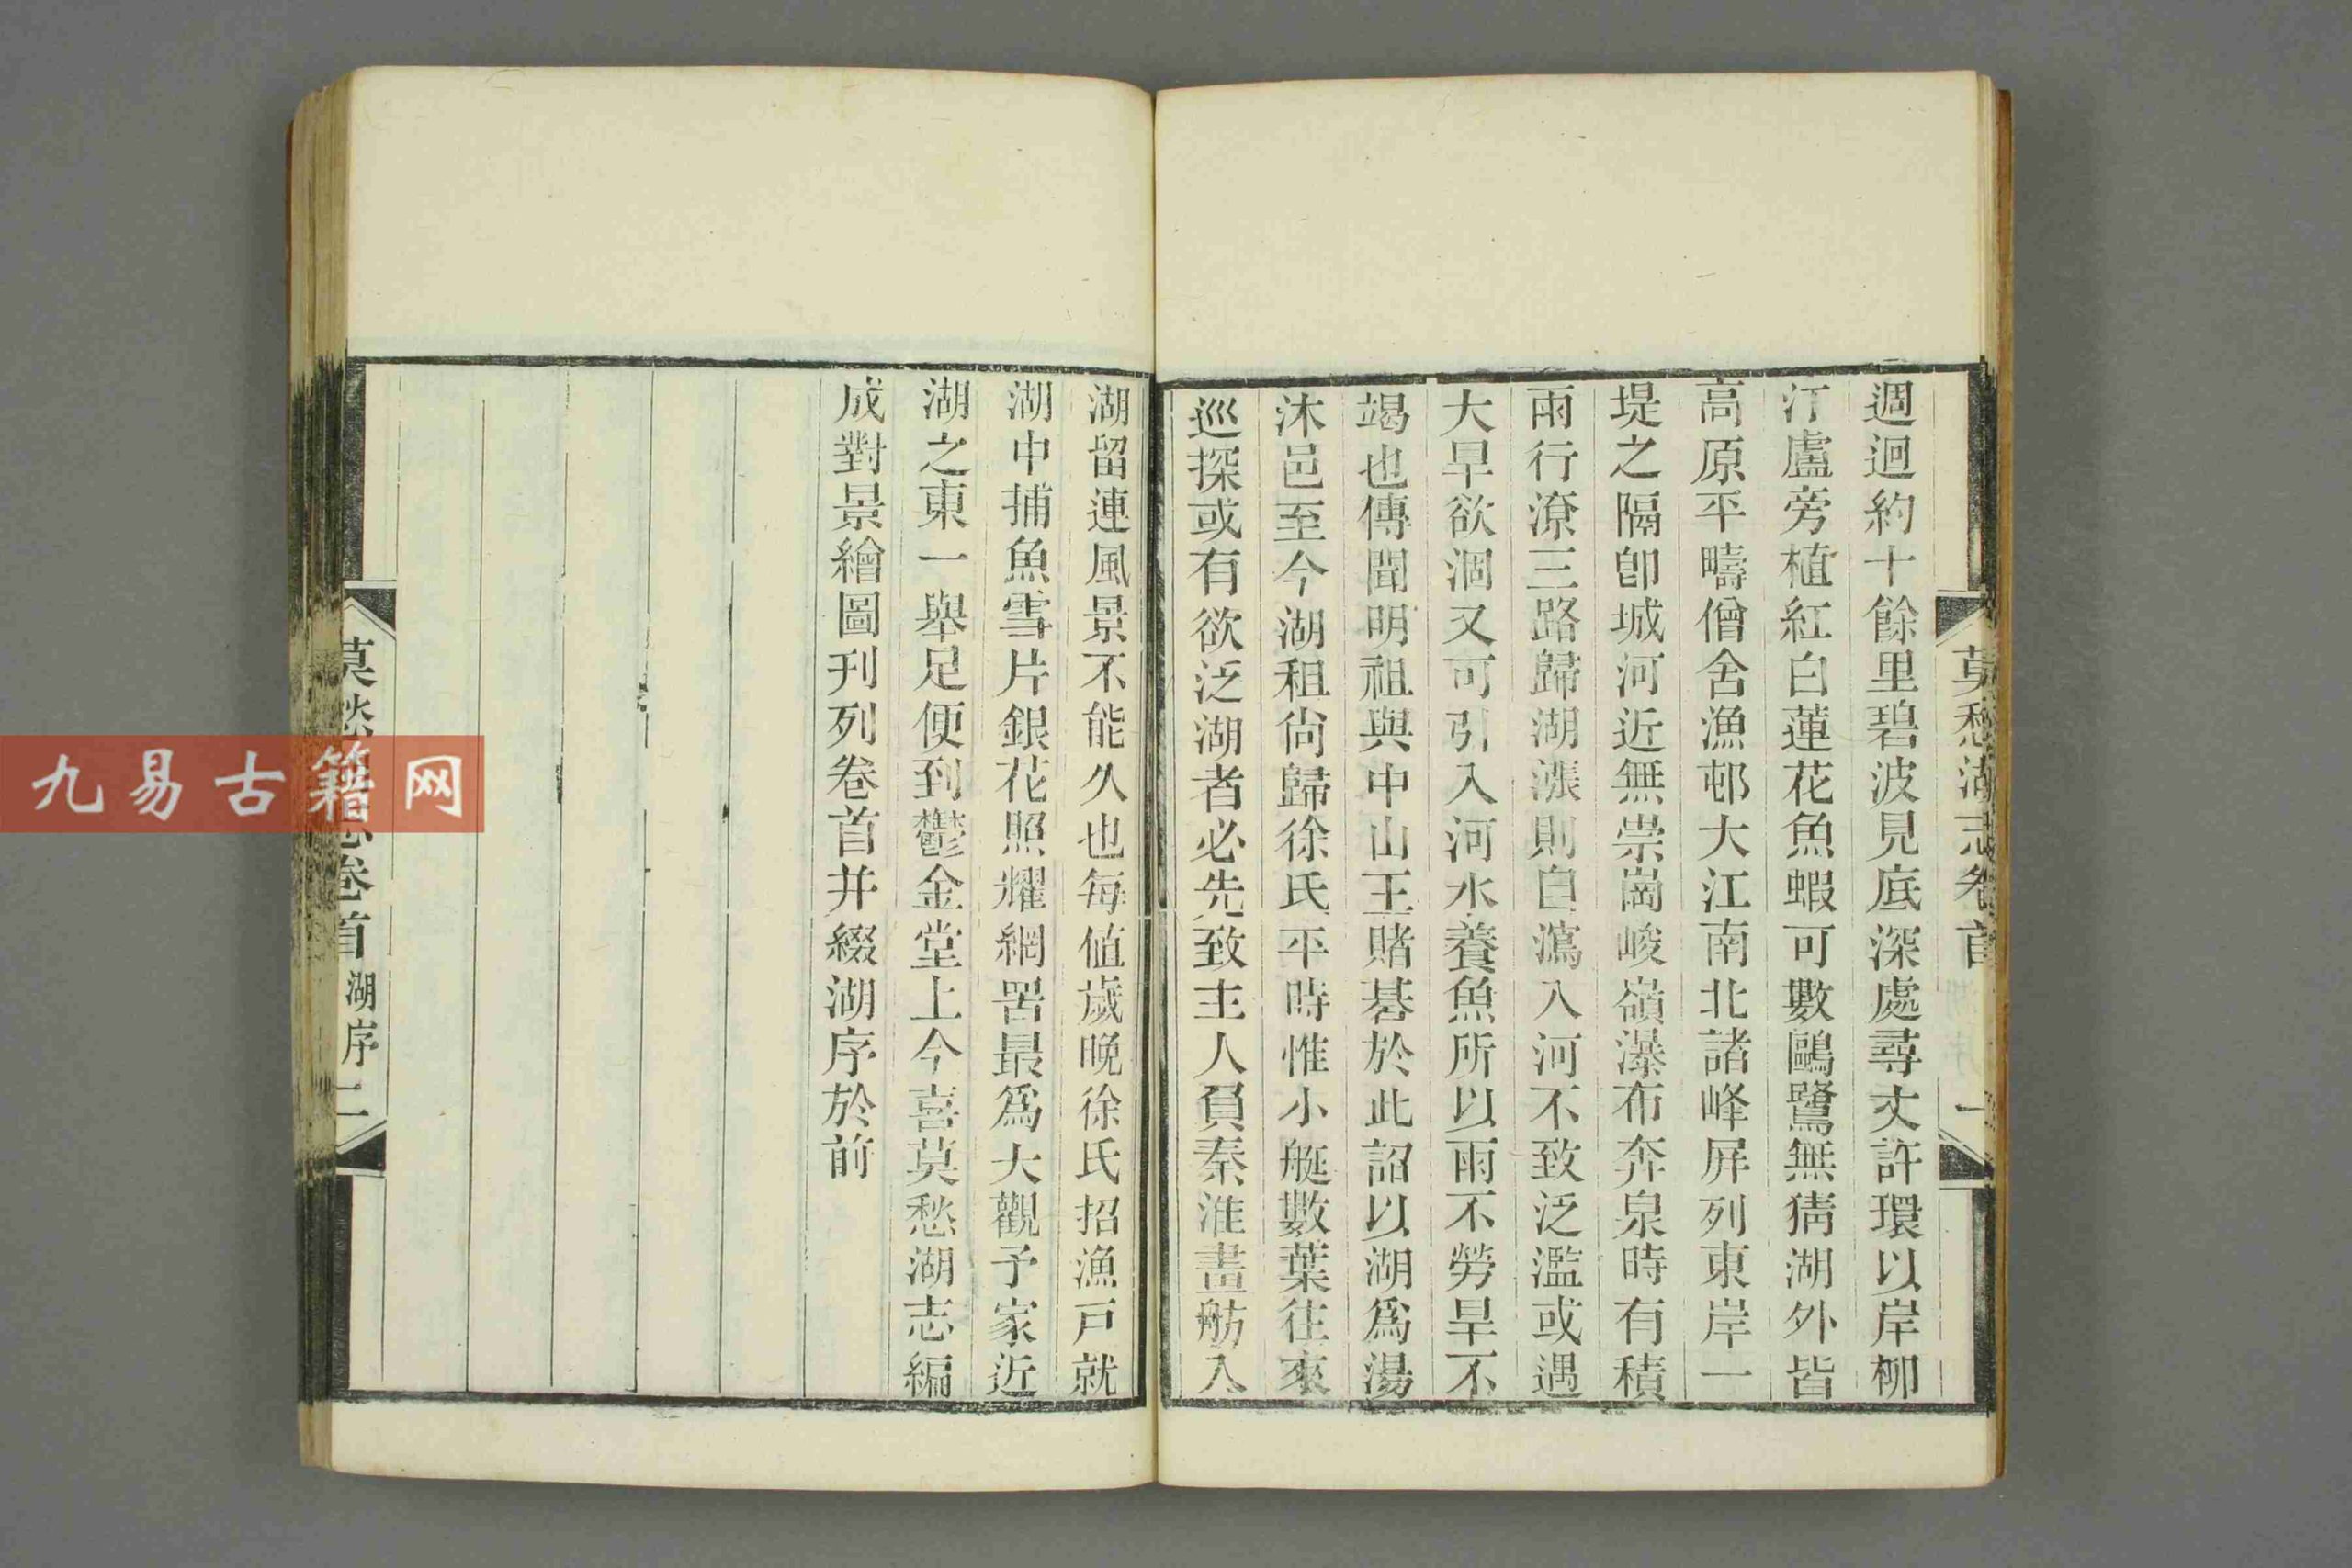 莫愁湖志卷首
一
週迴約十餘里碧波見底深處尋丈許環以岸柳
汀廬旁植紅白蓮花魚蝦可數鷗鷺無猜湖外皆
高原平疇僧舍漁邨大江南北諸峰屏列東岸一
堤之隔卽城河近無崇崗峻嶺瀑布奔泉時有積
雨行潦三路歸湖漲則自瀉入河不致泛濫或遇
大旱欲涸又可引入河水養魚所以雨不勞旱不
竭也傳聞明祖與中山王賭碁於此詔以湖爲湯
沐邑至今湖租尙歸徐氏平時惟小艇數葉往來
巡探或有欲泛湖者必先致主人員秦淮畫舫入
湖留連風景不能久也每値歲晚徐氏招漁戸就
湖中捕魚雪片銀花照耀網罟最爲大觀予家近
湖之東一舉足便到鬱金堂上今喜莫愁湖志編
成對景繪圖刋列卷首并綴湖序於前
莫愁湖志卷首 湖序 二
九易古籍网